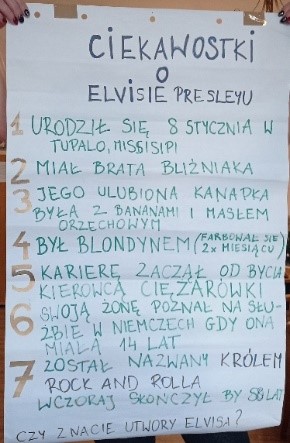 CIEKAWOSTKI
O
ELVISIE PRESLEYU
1 URODZIŁ SIĘ 8 STYCZNIA W
TUPALO, MISSISIPI
2 MIAŁ BRATA BLIŹNIAKA
3 JEGO ULUBIONA KANAPKA
BYŁA Z BANANAMI I MASŁEM
ORZECHOWYM
4 BYŁ BLONDYNEM (FARBOWAŁ SIĘ
2X MIESIĄCU)
5 KARIERĘ ZACZĄŁ OD BYCIA
KIEROWCĄ CIĘŻARÓWKI
6 SWOJĄ ŻONĘ POZNAŁ NA SŁU-
ŻBIE W NIEMCZECH GDY ONA
MIAŁA 14 LAT
7 ZOSTAŁ NAZWANY KRÓLEM
ROCK AND ROLLA
WCZORAJ SKOŃCZYŁ BY LAT
CZY ZNACIE UTWORY ELVISA?